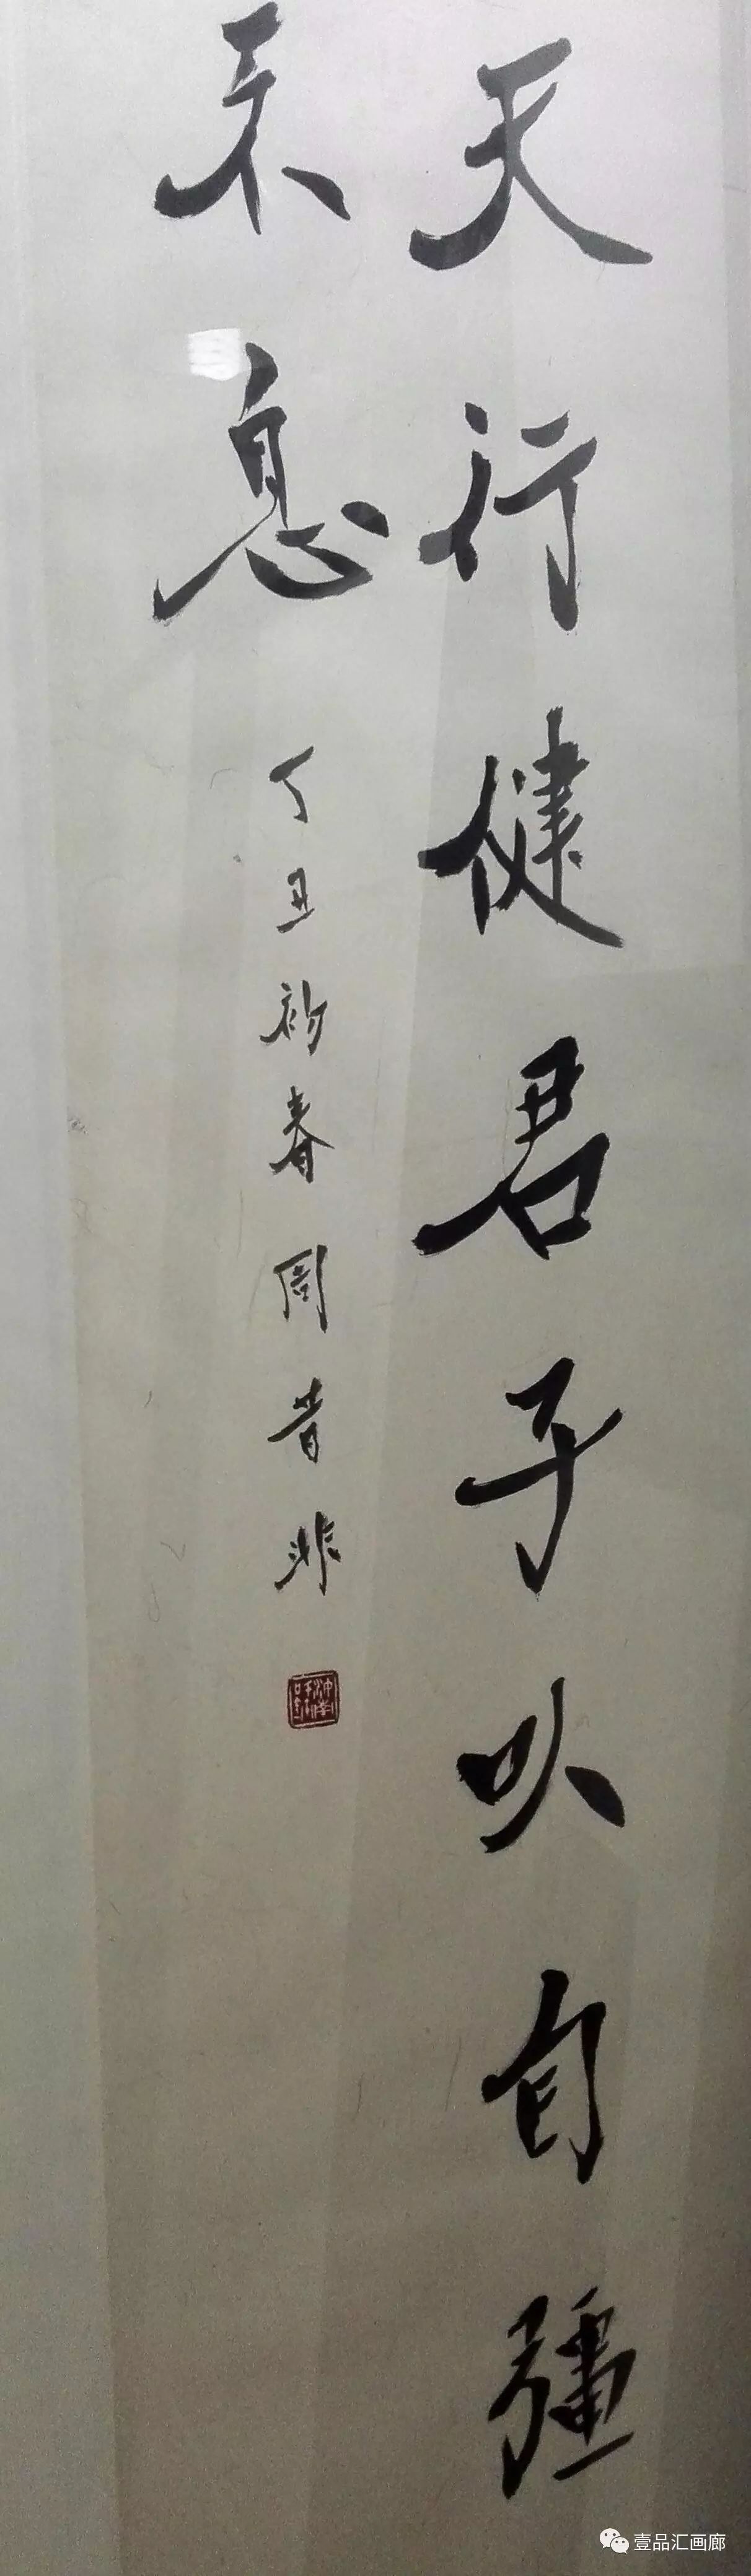 天行健君子以自彊
不息
丁丑初春周昔非
壹品汇画廊